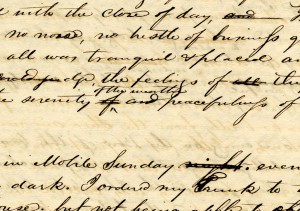 with the close of day, and
no noise, no bustle of business
all was tranquil & placid
the feelings of all
of the weather
serenity of and peacefulness of
in Mobile Sunday night. even
dark. I ordered my trunk to
but not being able to